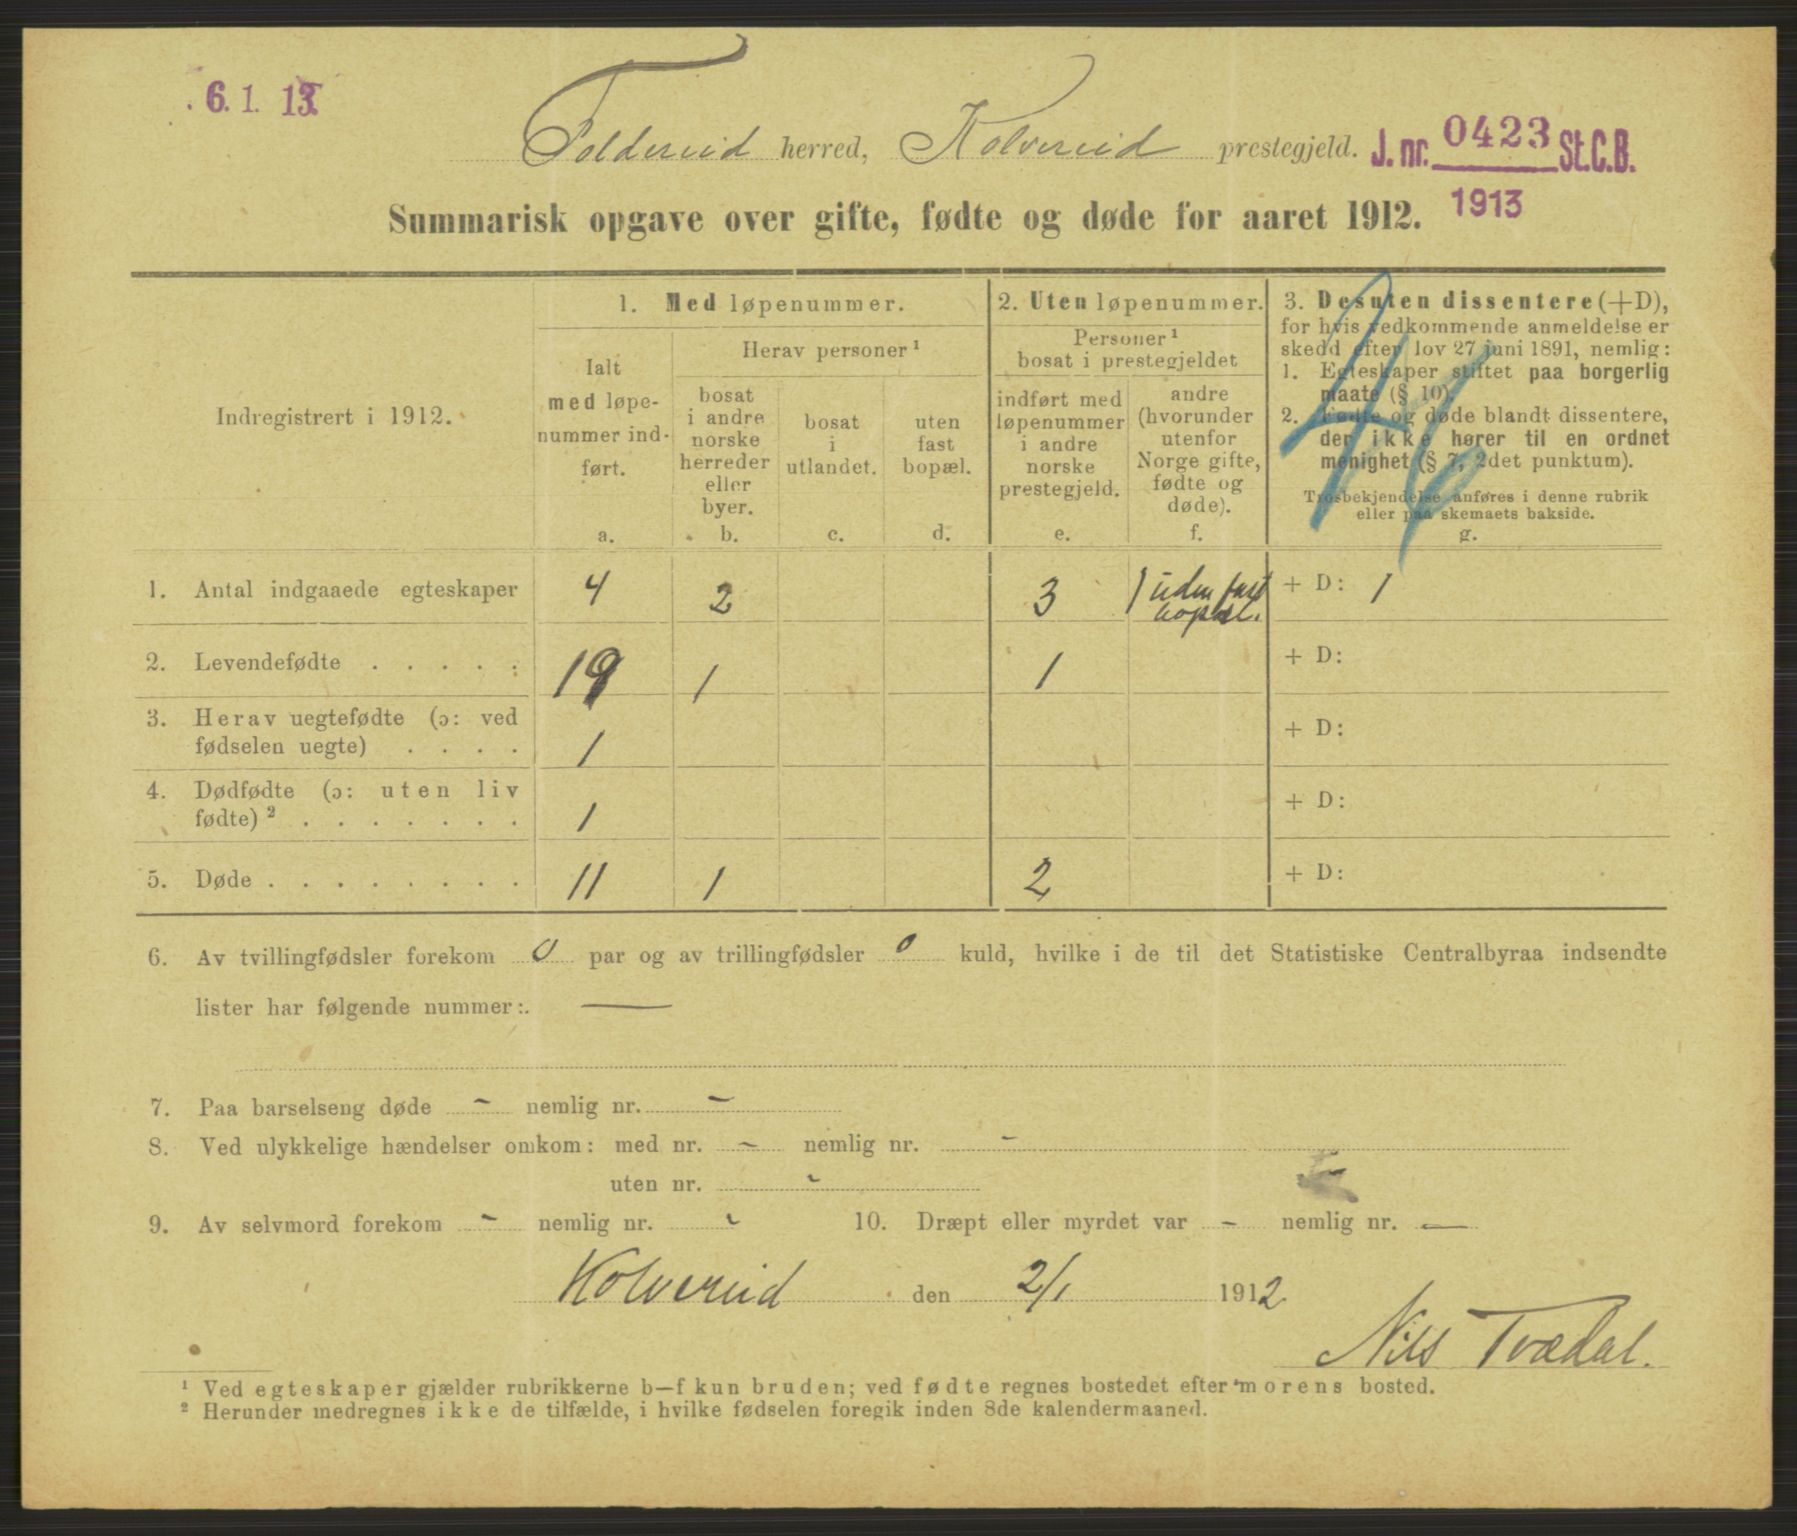 6. 1. 13.
Foldereid herred, Kolvereid prestegjeld. J. nr. 0423 St. C. B.
1913
Summarisk opgave over gifte, fødte og døde for aaret 1912.
Indregistrert i 1912.
1. Med løpenummer.
Ialt
med løpe-
nummer ind-
ført.
a.
Herav personer ¹
bosat
i andre
norske
herreder
eller
byer.
b.
bosat
i
utlandet.
c.
uten
fast
bopæl.
d.
2. Uten løpenummer.
Personer ¹
bosat i prestegjeldet
indført med
løpenummer
i andre
norske
prestegjeld.
e.
andre
(hvorunder
utenfor
Norge gifte,
fødte og
døde).
f.
3. Desuten dissentere (+D),
for hvis vedkommende anmeldelse er
skedd efter lov 27 juni 1891, nemlig:
1. Egteskaper stiftet paa borgerlig
maate (§ 10).
2. Fødte og døde blandt dissentere,
der ikke hører til en ordnet
menighet (§ 7, 2det punktum).
Trosbekjendelse anføres i denne rubrik
eller paa skemaets bakside.
g.
1. Antal indgaaede egteskaper 4 2 3 1 uden fast bopæl. + D: 1
2. Levendefødte . . . . . 19 1 1 + D:
3. Herav uegtefødte (ɔ: ved
fødselen uegte) . . . . 1 + D:
4. Dødfødte (ɔ: uten liv
fødte) ² . . . . . . . 1 + D:
5. Døde . . . . . . . . 11 1 2 + D:
6. Av tvillingfødsler forekom 0 par og av trillingfødsler 0 kuld, hvilke i de til det Statistiske Centralbyraa indsendte
lister har følgende nummer: —
7. Paa barselseng døde - nemlig nr. -
8. Ved ulykkelige hændelser omkom: med nr. - nemlig nr. -
uten nr. -
9. Av selvmord forekom - nemlig nr. - 10. Dræpt eller myrdet var - nemlig nr. —
Kolvereid den 2/1 1912.
Nils Tvædal.
¹ Ved egteskaper gjælder rubrikkerne b—f kun bruden; ved fødte regnes bostedet efter morens bosted.
² Herunder medregnes ikke de tilfælde, i hvilke fødselen foregik inden 8de kalendermaaned.